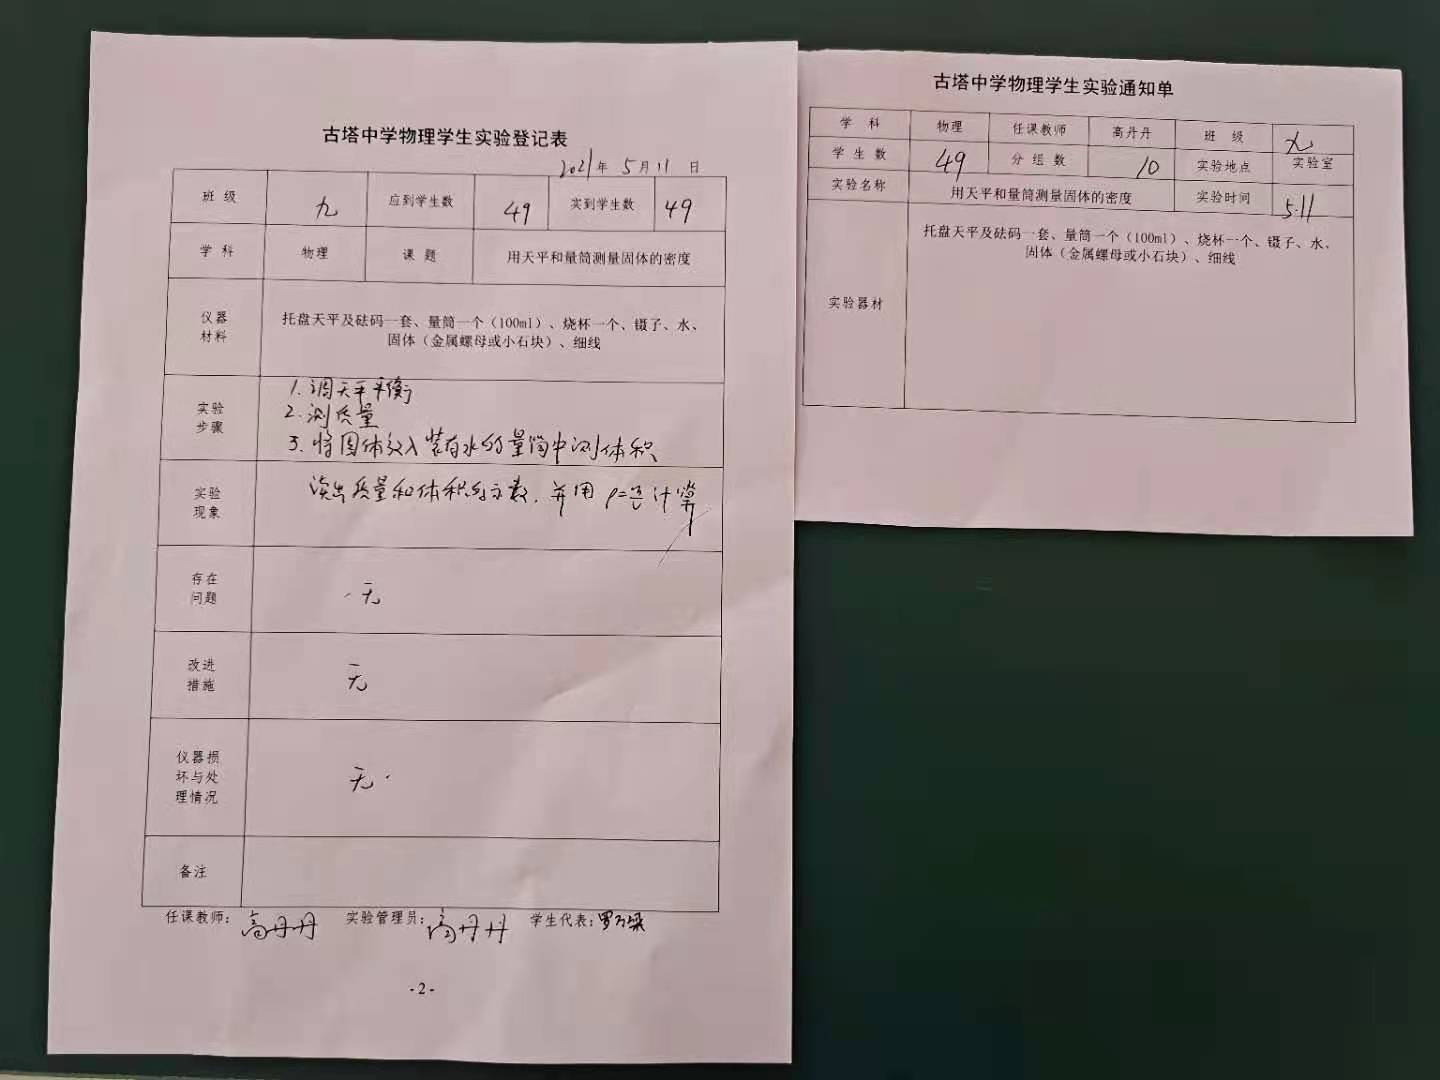 古塔中学物理学生实验登记表
2021年 5月11日
班 级 九 应到学生数 49 实到学生数 49
学 科 物理 课 题 用天平和量筒测量固体的密度
仪器
材料
托盘天平及砝码一套、量筒一个（100ml）、烧杯一个、镊子、水、
固体（金属螺母或小石块）、细线
实验
步骤
1.调天平平衡
2.测质量
3.将固体放入装有水的量筒中测体积
实验
现象
读出质量和体积的示数，并用ρ=m/v计算
存在
问题
无
改进
措施
无
仪器损
坏与处
理情况
无
备注
任课教师：高丹丹 实验管理员：高丹丹 学生代表：罗
-2-
古塔中学物理学生实验通知单
学 科 物理 任课教师 高丹丹 班 级 九
学 生 数 49 分 组 数 10 实验地点 实验室
实验名称 用天平和量筒测量固体的密度 实验时间 5.11
实验器材
托盘天平及砝码一套、量筒一个（100ml）、烧杯一个、镊子、水、
固体（金属螺母或小石块）、细线